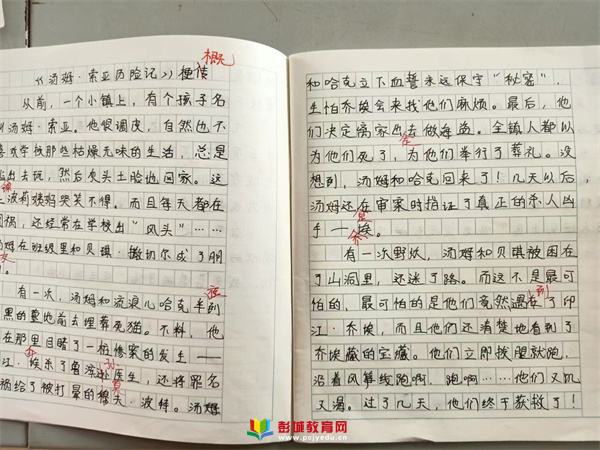 《汤姆·索亚历险记》梗
概
从前，一个小镇上，有个孩子名
汤姆·索亚。他很调皮，自然也不
喜欢学校那些枯燥无味的生活，总是
出去玩，然后灰头土脸地回家。这
波莉姨妈哭笑不得。而且每天都在
还经常在学校出“风头”……
汤姆在班级里和贝琪·撒切尔成了朋
有一次，汤姆和流浪儿哈克
黑的墓地前去埋葬死猫。不料，他
在那里目睹了一桩惨案的发生——
江·埃杀了鲁滨逊医生，还将罪名
给了被打晕的穆夫·波特。汤姆
和哈克立下血誓永远保守“秘密”，
生怕乔埃会来找他们麻烦。最后，他
们决定离家出去做海盗。全镇人都以
为他们死了，为他们举行了葬礼。没
想到，汤姆和哈克回来了！几天以后，
汤姆还在审案时指证了真正的杀人凶
手——埃。
有一次野炊，汤姆和贝琪被困在
了山洞里，还迷了路。而这不是最可
怕的，最可怕的是他们竟然遇到了印
江·乔埃，而且他们还清楚地看到了
乔埃藏的宝藏。他们立即拔腿就跑，
沿着风筝线跑啊，跑啊……他们又饥
又渴。过了几天，他们终于获救了！
彭城教育网
www.pcjyedu.cn